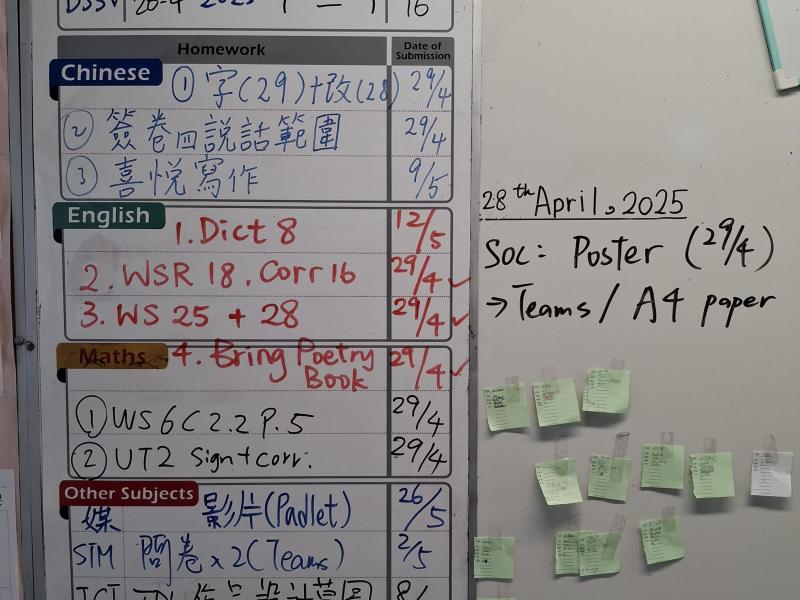 2025
16
Homework
Date of Submission
Chinese
① 字(29)+改(28) 29/4
② 簽卷四說話範圍 29/4
③ 喜悅寫作 9/5
English
1. Dict 8 12/5
2. WSR 18. Corr 16 29/4 ✓
3. WS 25 + 28 29/4 ✓
Maths
4. Bring Poetry Book 29/4 ✓
① WS 6C 2.2 P.5 29/4
② UT2 Sign+corr. 29/4
Other Subjects
媒 影片(Padlet) 26/5
STM 問卷x2(Teams) 2/5
28th April, 2025
Soc: Poster (29/4)
→Teams/ A4 paper